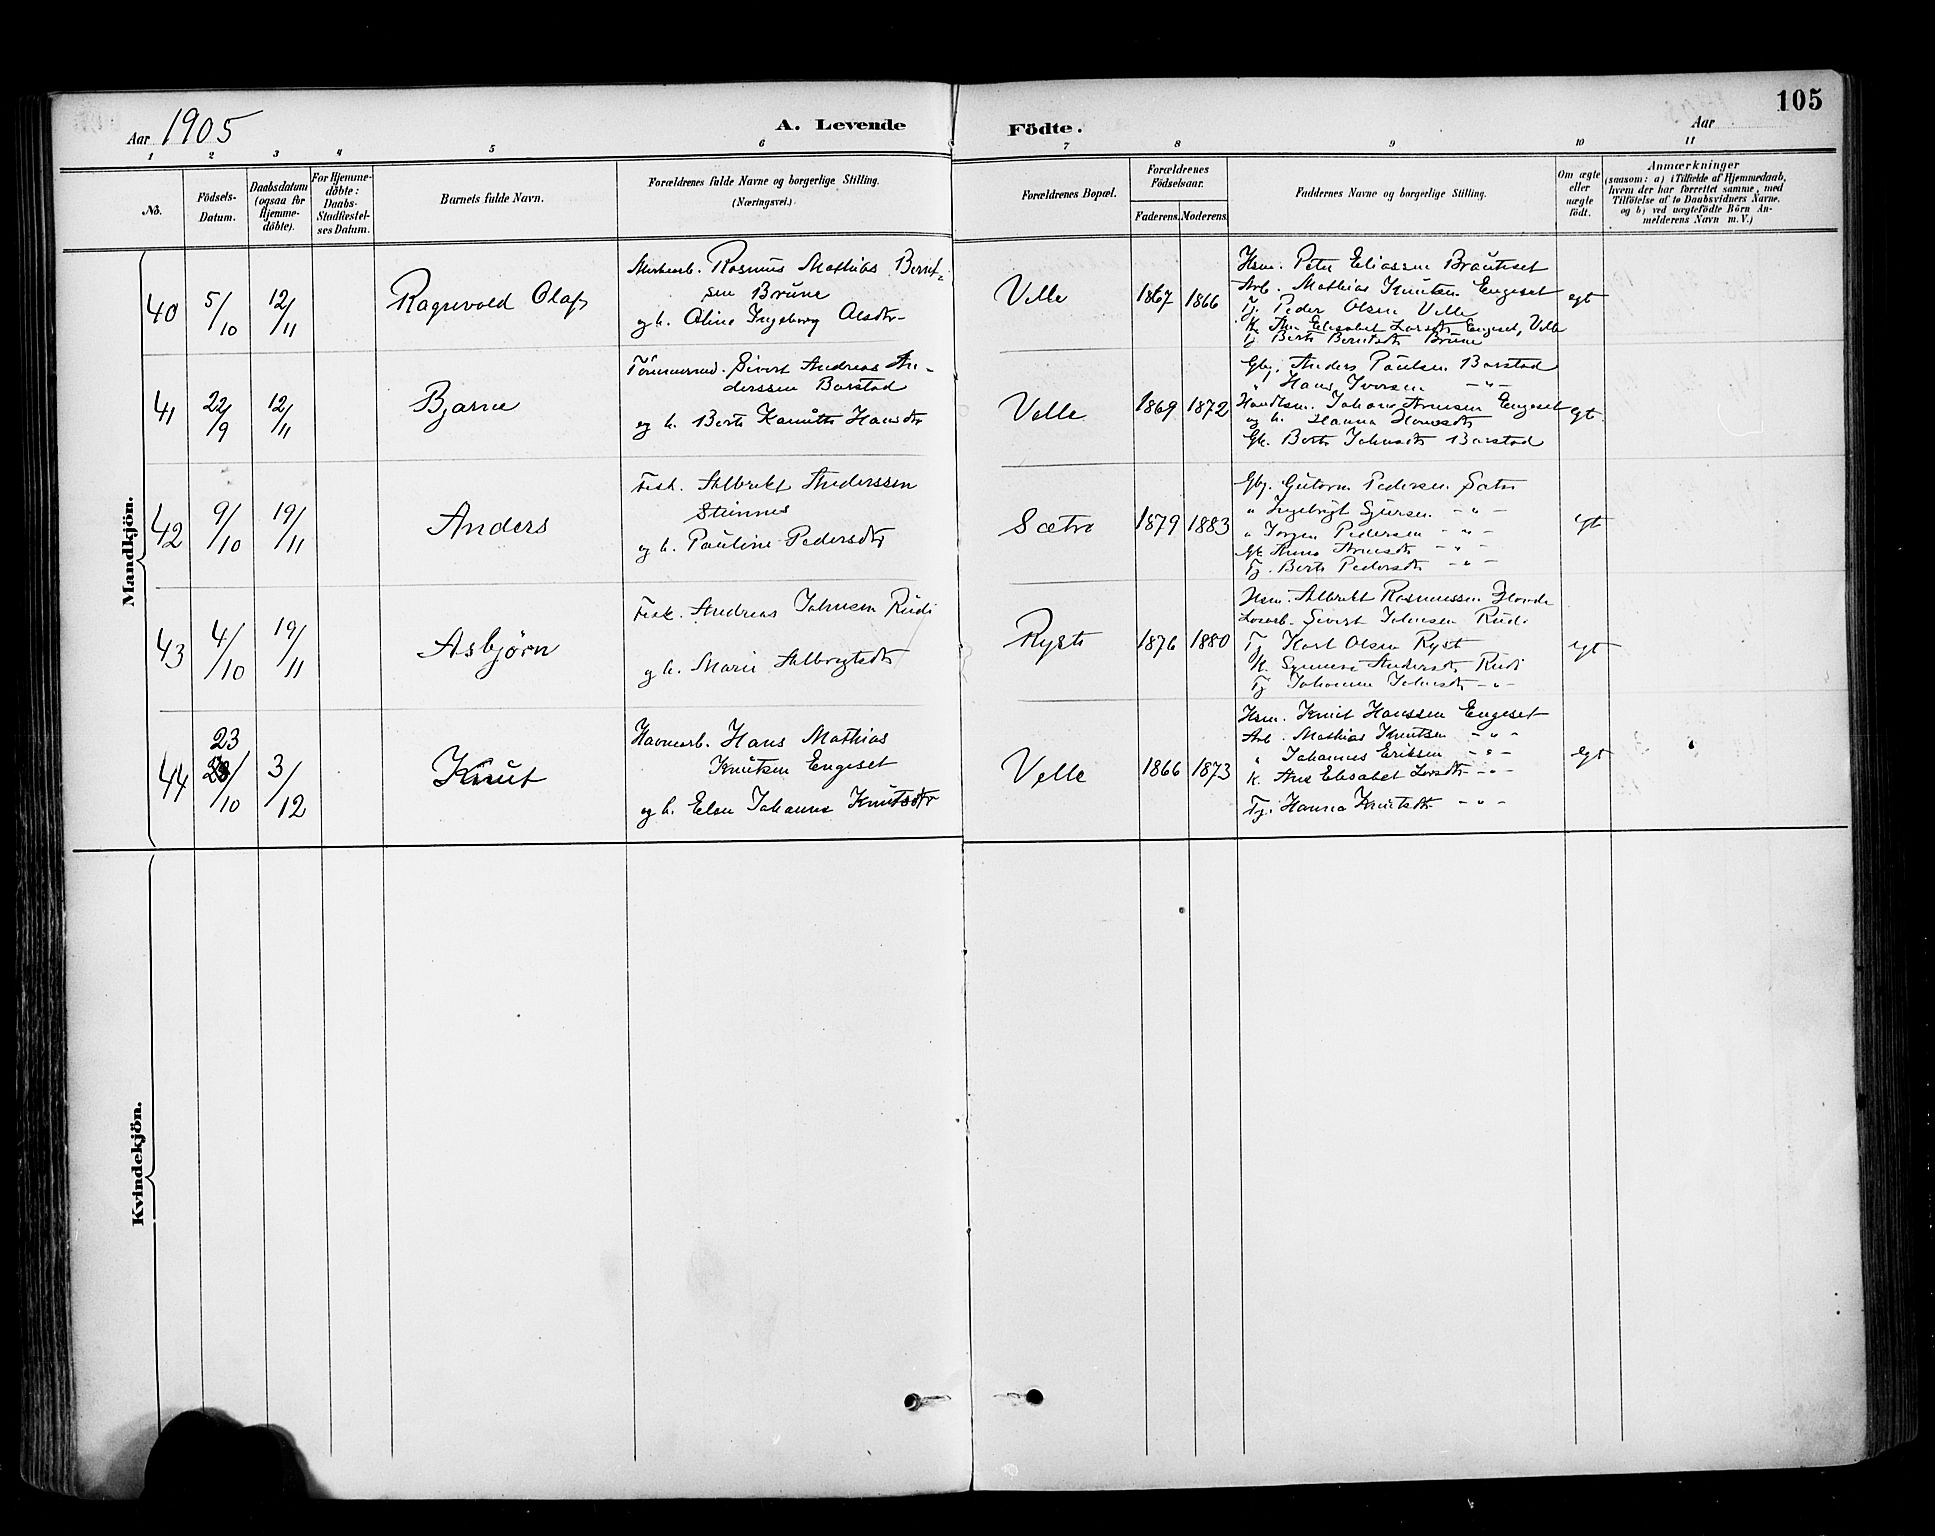 105
Aar 1905
A. Levende Födte.
Aar
1 2 3 4 5 6 7 8 9 10 11
No.
Födsels-Datum.
Daabsdatum (ogsaa for Hjemme-döbte).
For Hjemme-döbte: Daabs-Stadfæstel-ses Datum.
Barnets fulde Navn.
Forældrenes fulde Navne og borgerlige Stilling.
(Næringsvei.)
Forældrenes Bopæl.
Forældrenes Födselsaar.
Faderens. Moderens.
Faddernes Navne og borgerlige Stilling.
Om ægte eller uægte födt.
Anmærkninger
(saasom: a) i Tilfælde af Hjemmedaab,
hvem der har forrettet samme, med
Tilföielse af to Daabsvidners Navne,
og b) ved uægtefödte Börn An-
melderens Navn m. V.)
Mandkjön.
40 5/10 12/11 Ragnvold Olaf
Rasmus Mathias Bernt-
sen Brune
og h. Oline Ingeborg Olsdtr
Velle 1867 1866
Hsm. Peter Eliassen Brauteset
Arb. Mathias Knutsen Engeset
Tj. Peder Olsen Velle
K. Ane Elisabet Larsdtr Engeset, Velle
Tj. Berte Berntsdtr Brune
egt
41 22/9 12/11 Bjarne
Tömmermd. Sivert Andreas An-
derssen Barstad
og h. Berte Kanutte Hansdtr
Velle 1869 1872
Gbj. Anders Paulsen Barstad
" Hans Iversen -"-
Handlsm. Johan Arnesen Engeset
og h. Hanna Hansdtr
Gk. Berte Johnsdtr Barstad
egt.
42 9/10 19/11 Anders
Fisk. Albrekt Anderssen
Steinnes
og h. Pauline Pedersdtr
Sætre 1879 1883
Gbj. Guttorm Pedersen Sætre
" Ingebrigt Sjursen -"-
" Jörgen Pedersen -"-
Gk. Anne Arnesdtr -"-
Tj. Berte Pedersdtr -"-
egt
43 4/10 19/11 Asbjørn
Fisk. Andreas Johnsen Rudi
og h. Marie Albrigtsdtr
Ryste 1876 1880
Hsm. Albrekt Rasmussen
Sivert Johnsen Rudi
Tj. Karl Olsen Ryst
K. Synneve Andersdtr Rudi
Tj. Johanne Johnsdtr -"-
egt
44 23/10 3/12 Knut
Havnearb. Hans Mathias
Knutsen Engeset
og h. Elen Johanne Knutsdtr
Velle 1866 1873
Hsm. Knut Hanssen Engeset
Arb. Mathias Knutsen -"-
" Johannes Eriksen -"-
K. Ane Elisabet Larsdtr -"-
Tj. Hanna Knutsdtr -"-
egt
Kvindekjön.